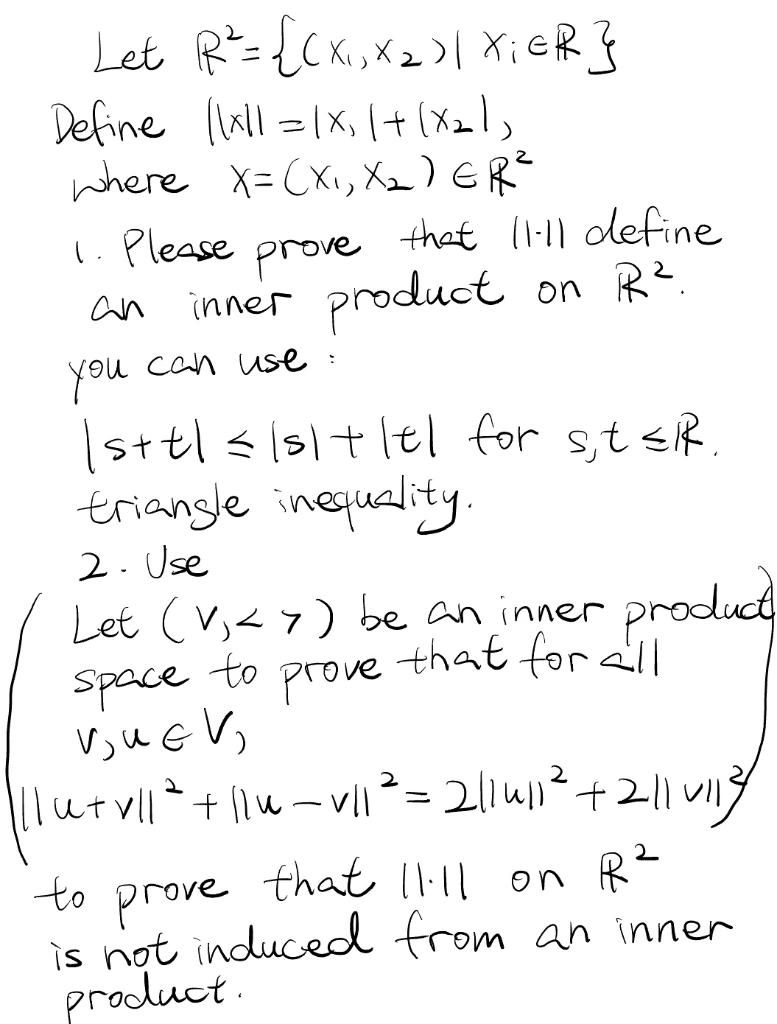 Let ℝ²={(x₁,x₂)| xᵢ∈ℝ}
Define ||x|| = |x₁|+|x₂|,
where x=(x₁,x₂) ∈ℝ²
1. Please prove that ||·|| define
an inner product on ℝ².
you can use :
|s+t| ≤ |s|+|t| for s,t ≤ℝ.
triangle inequality.
2. Use
Let (V,< >) be an inner product
space to prove that for all
v,u ∈ V,
(||u+v||² + ||u-v||² = 2||u||² + 2||v||²)
to prove that ||·|| on ℝ²
is not induced from an inner
product.